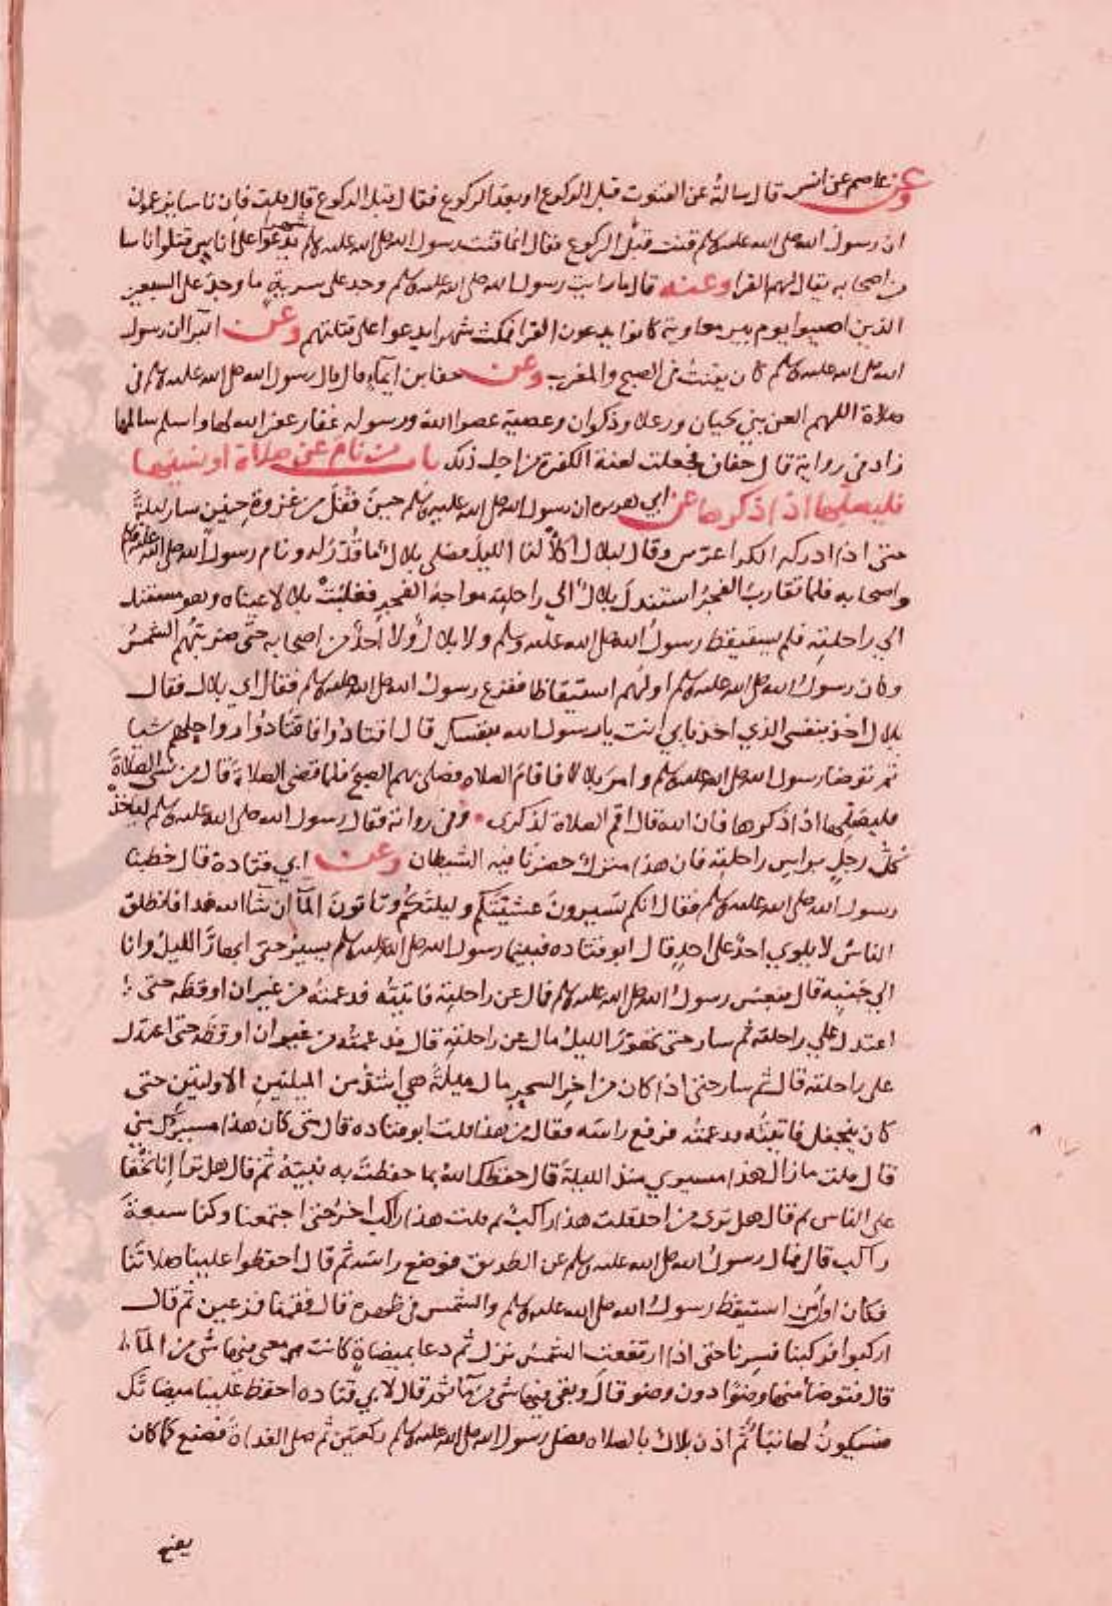 وعن عاصم عن انس قال سالته عن القنوت قبل الركوع او بعد الركوع فقال قبل الركوع قال قلت فان ناسا يزعمون
ان رسول الله صلى الله عليه وسلم قنت قبل الركوع فقال انما قنت رسول الله صلى الله عليه وسلم شهرا يدعوا على اناس قتلوا اناسا
من اصحابه يقال لهم القرا وعنه قال ما رايت رسول الله صلى الله عليه وسلم وجد على سرية ما وجد على السبعين
الذين اصيبوا يوم بير معاوية كانوا يدعون القرا فمكث شهرا يدعوا على قتلتهم وعن البرا ان رسول
الله صلى الله عليه وسلم كان يقنت في الصبح والمغرب وعن خفاف بن ايماء قال قال رسول الله صلى الله عليه وسلم في
صلاة اللهم العن بني لحيان ورعلا وذكوان وعصية عصوا الله ورسوله غفار غفر الله لها واسلم سالمها
زاد في رواية قال خفاف فجعلت لعنة الكفرة من اجل ذلك باب من نام عن صلاة او نسيها
فليصلها اذا ذكرها عن ابي هريره ان رسول الله صلى الله عليه وسلم حين قفل من غزوة حنين سار ليلة
حتى اذا ادركه الكرا عرس وقال لبلال اكلأ لنا الليل فصلى بلال ما قدر له ونام رسول الله صلى الله عليه وسلم
واصحابه فلما تقارب الفجر استند بلال الي راحلته مواجه الفجر فغلبت بلالا عيناه وهو مستند
الي راحلته فلم يستيقظ رسول الله صلى الله عليه وسلم ولا بلال ولا احد من اصحابه حتى ضربتهم الشمس
وكان رسول الله صلى الله عليه وسلم اولهم استيقاظا ففزع رسول الله صلى الله عليه وسلم فقال اي بلال فقال
بلال اخذ بنفسي الذي اخذ بابي انت يا رسول الله بنفسك قال اقتادوا فاقتادوا رواحلهم شيا
ثم توضا رسول الله صلى الله عليه وسلم وامر بلالا فاقام الصلاه فصلى بهم الصبح فلما قضى الصلاة قال من نسي الصلاة
فليصلها اذا ذكرها فان الله قال اقم الصلاة لذكرى وفي رواية فقال رسول الله صلى الله عليه وسلم لياخذ
كل رجل براس راحلته فان هذا منزل حضرنا فيه الشيطان وعن ابي قتادة قال خطبنا
رسول الله صلى الله عليه وسلم فقال انكم تسيرون عشيتكم وليلتكم وتاتون المآ ان شآ الله غدا فانطلق
الناس لا يلوي احد على احد قال ابو قتاده فبينما رسول الله صلى الله عليه وسلم يسير حتى ابهار الليل وانا
الي جنبه قال فنعس رسول الله صلى الله عليه وسلم فمال عن راحلته فاتيته فدعمته من غير ان اوقظه حتى
اعتدل علي راحلته ثم سار حتى تهور الليل مال عن راحلته قال فدعمته من غير ان اوقظه حتى اعتدل
على راحلته قال ثم سار حتى اذا كان من اخر السحر مال ميلة هي اشد من الميلتين الاوليتين حتى
كاد ينجفل فاتيته فدعمته فرفع راسه فقال من هذا قلت ابو قتاده قال متى كان هذا مسيرك مني
قال قلت ما زال هذا مسيري منذ الليلة قال حفظك الله بما حفظت به نبيه ثم قال هل ترانا نخفا
على الناس ثم قال هل ترى من احد قلت هذا راكب ثم قلت هذا راكب اخر حتى اجتمعنا وكنا سبعة
راكب قال فمال رسول الله صلى الله عليه وسلم عن الطريق فوضع راسه ثم قال احفظوا علينا صلاتنا
فكان اول من استيقظ رسول الله صلى الله عليه وسلم والشمس في ظهره قال فقمنا فزعين ثم قال
اركبوا فركبنا فسرنا حتى اذا ارتفعت الشمس نزل ثم دعا بميضاة كانت معي فيها شي من المآ
قال فتوضا منها وضوا دون وضو قال وبقي فيها شي من مآ ثم قال لابي قتاده احفظ علينا ميضاتك
فسيكون لها نبا ثم اذن بلال بالصلاه فصلى رسول الله صلى الله عليه وسلم ركعتين ثم صلى الغداة فصنع كما كان
يصنع